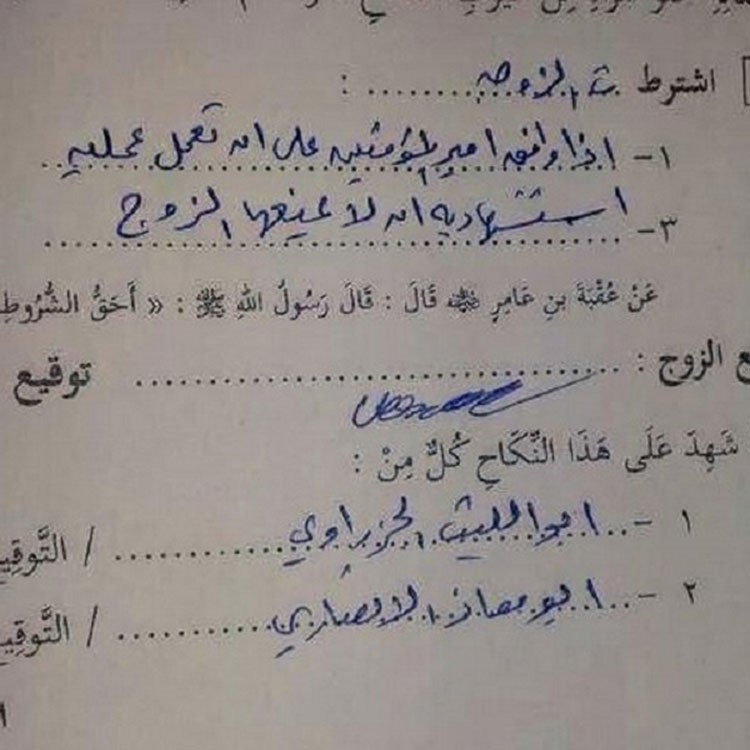 اشترطت الزوجة :
١- اذا وافق امير المؤمنين على ان تعمل عملية
٣- استشهادية ان لا يمنعها الزوج
عَنْ عُقْبَةَ بنِ عَامِرٍ ﷺ قَالَ : قَالَ رَسُولُ اللهِ ﷺ : « أَحَقُّ الشُّرُوطِ
ع الزوج : توقيع
شَهِدَ عَلَى هَذَا النِّكَاحِ كُلٌّ مِنْ :
١ - ابو الليث الجزراوي / التَّوقِيـ
٢ - ابو الانصاري / التَّوقِيـ